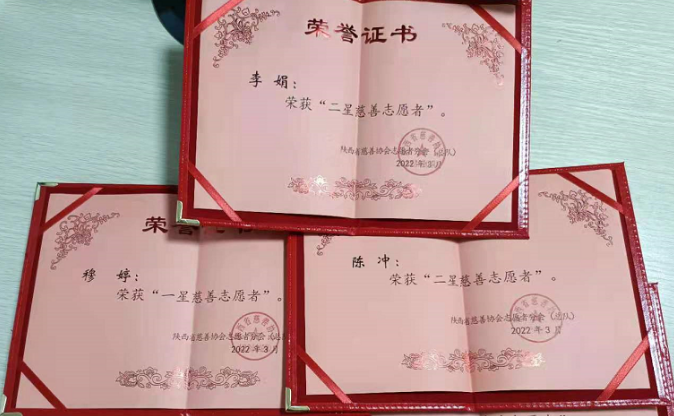 荣誉证书
李 娟：
荣获“二星慈善志愿者”。
陕西省慈善协会志愿者分会（总队）
2022年3月
荣
穆 婷：
荣获“一星慈善志愿者”。
陕西省慈善协会志愿者分会（总
2022年3月
陈 冲：
荣获“二星慈善志愿者”。
陕西省慈善协会志愿者分会（总队）
2022年3月